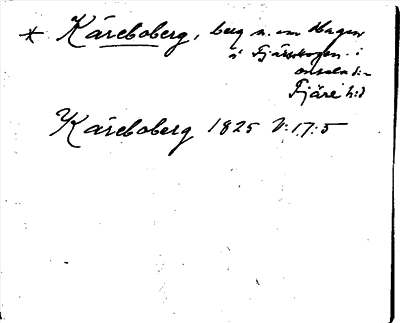 * Käreboberg, berg n. om Hagen
i Fjärskogen i
Onsala s:n
Fjäre h:d
Käreboberg 1825 V:17:5